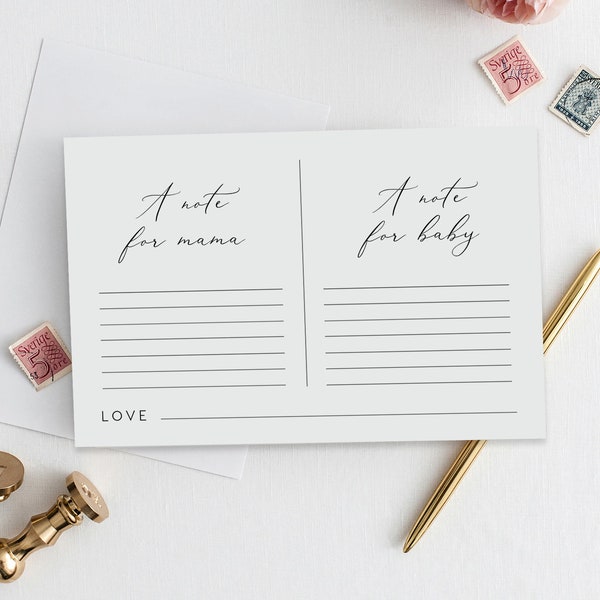 A note
for mama
A note
for baby
LOVE
Sverige
5 öre
Sverige
5 öre